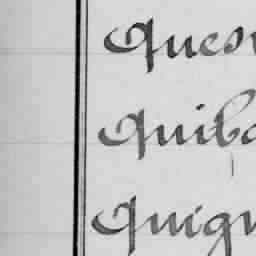 Ques
Quiba
Quign